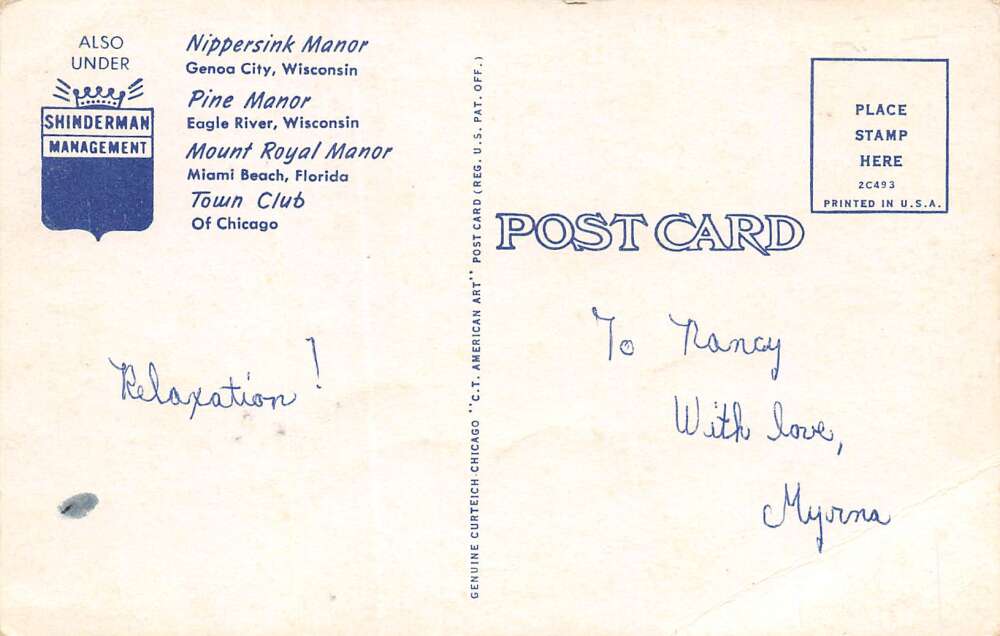 ALSO
UNDER
SHINDERMAN
MANAGEMENT
Nippersink Manor
Genoa City, Wisconsin
Pine Manor
Eagle River, Wisconsin
Mount Royal Manor
Miami Beach, Florida
Town Club
Of Chicago
Relaxation!
GENUINE CURTEICH-CHICAGO "C.T. AMERICAN ART" POST CARD (REG. U.S. PAT. OFF.)
POST CARD
PLACE
STAMP
HERE
2C493
PRINTED IN U.S.A.
To Nancy
With love,
Myrna